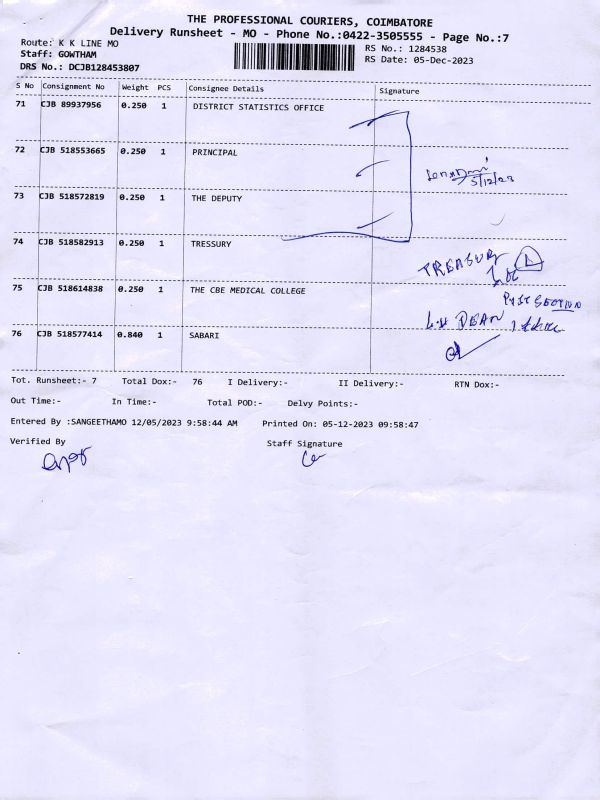 THE PROFESSIONAL COURIERS, COIMBATORE
Delivery Runsheet - MO - Phone No.:0422-3505555 - Page No.:7
Route: K K LINE MO
RS No.: 1284538
Staff: GOWTHAM
RS Date: 05-Dec-2023
DRS No.: DCJB128453807
S No Consignment No Weight PCS Consignee Details Signature
71 CJB 89937956 0.250 1 DISTRICT STATISTICS OFFICE
72 CJB 518553665 0.250 1 PRINCIPAL
5/12/23
73 CJB 518572819 0.250 1 THE DEPUTY
74 CJB 518582913 0.250 1 TRESSURY
TREASURY
75 CJB 518614838 0.250 1 THE CBE MEDICAL COLLEGE
SECTION
DEAN
76 CJB 518577414 0.840 1 SABARI
Tot. Runsheet:- 7 Total Dox:- 76 I Delivery:- II Delivery:- RTN Dox:-
Out Time:- In Time:- Total POD:- Delvy Points:-
Entered By :SANGEETHAMO 12/05/2023 9:58:44 AM Printed On: 05-12-2023 09:58:47
Verified By Staff Signature